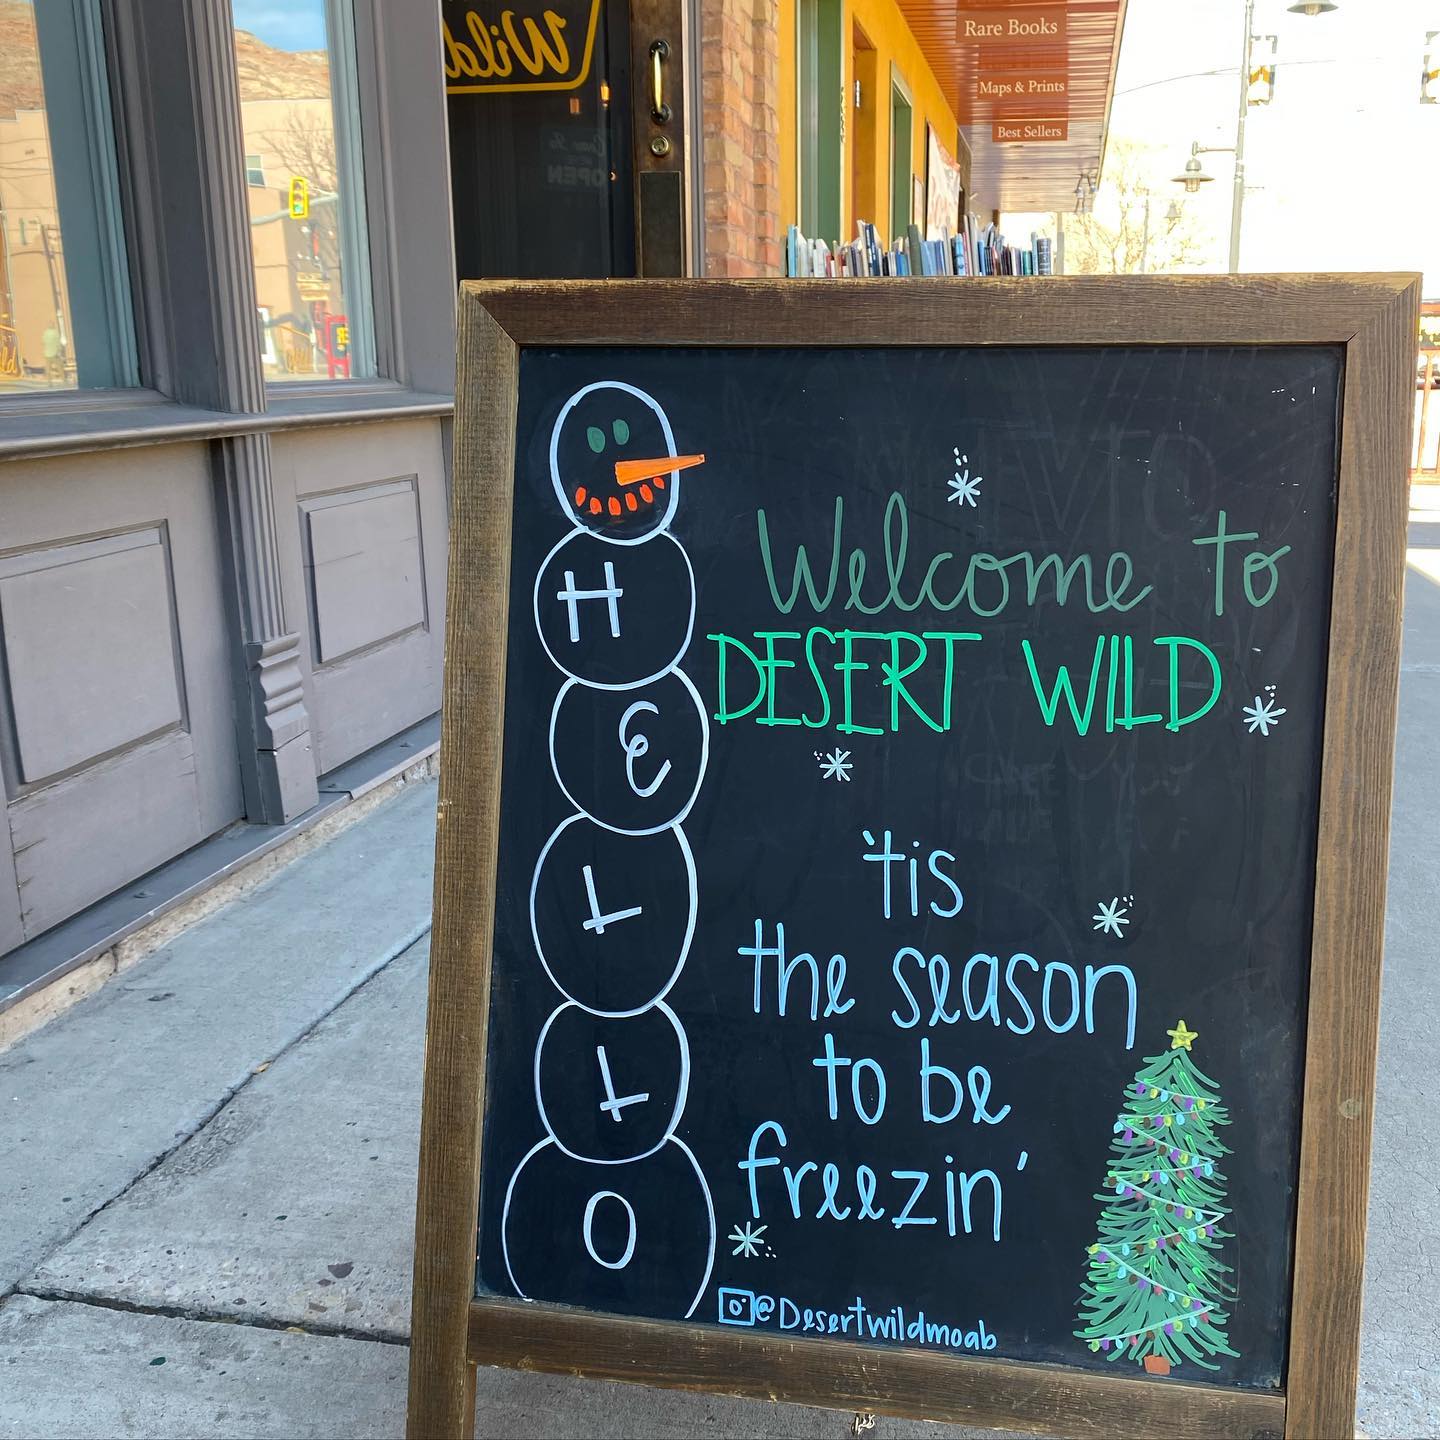 Wild
OPEN
Rare Books
Maps & Prints
Best Sellers
H
E
L
L
O
Welcome to
DESERT WILD
'tis
the season
to be
freezin'
@Desertwildmoab